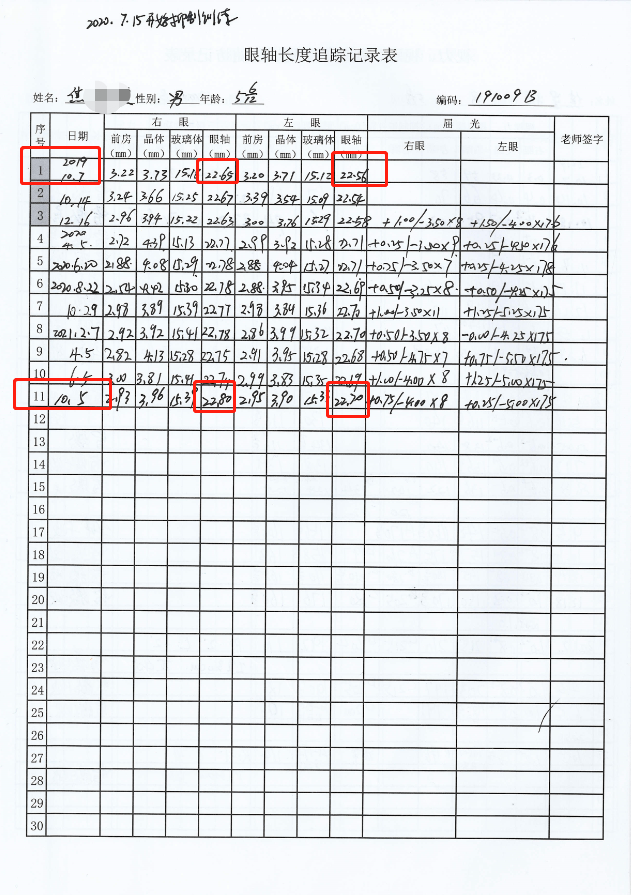 2020. 7.15开始抑制训练
眼轴长度追踪记录表
姓名: 性别: 男 年龄: 5 6/12 编码: 191009B
序号 日期 右 眼 左 眼 屈 光 老师签字
前房(mm) 晶体(mm) 玻璃体(mm) 眼轴(mm) 前房(mm) 晶体(mm) 玻璃体(mm) 眼轴(mm) 右眼 左眼
1 2019 10.7 3.22 3.73 22.65 3.20 3.71 15.12 22.56
2 10.14 3.24 3.66 15.25 22.67 3.39 3.54 15.09 22.54
3 12.16 2.96 3.94 15.22 22.63 3.00 3.76 15.29 22.58 +1.00/-3.50×8 +1.50/-4.00×176
4 2020 4.5. 2.72 4.39 15.13 22.71 +0.25/
5 2020.6.20 2.88 4.08 15.29 22.78 2.88 4.04 15.27 22.71 +0.25/-3.50×7 +0.25/-4.25×178
6 2020.8.22 4.42 22.78 2.88 3.95 15.34 22.69 +0.50/-3.25×8 +0.50/-4.25×175
7 10.29 2.98 3.89 15.39 22.77 2.98 3.84 15.36 22.70 +1.00/-3.50×11 +1.25/-5.25×175
8 2021.2.7 2.92 3.92 15.41 22.78 2.86 3.99 15.32 22.70 +0.50/-3.50×8 -0.00/-4.25×175
9 4.5 2.82 4.13 15.28 22.75 2.91 3.95 15.28 22.68 +0.50/-4.75×7 +0.75/-5.50×175
10 6.5 3.00 3.81 2.99 3.83 +1.00/-4.00×8 +1.25/-5.00×175
11 10.5 2.93 3.96 22.80 2.95 3.90 22.70 +0.75/-4.00×8 +0.25/-5.00×175
12
13
14
15
16
17
18
19
20
21
22
23
24
25
26
27
28
29
30